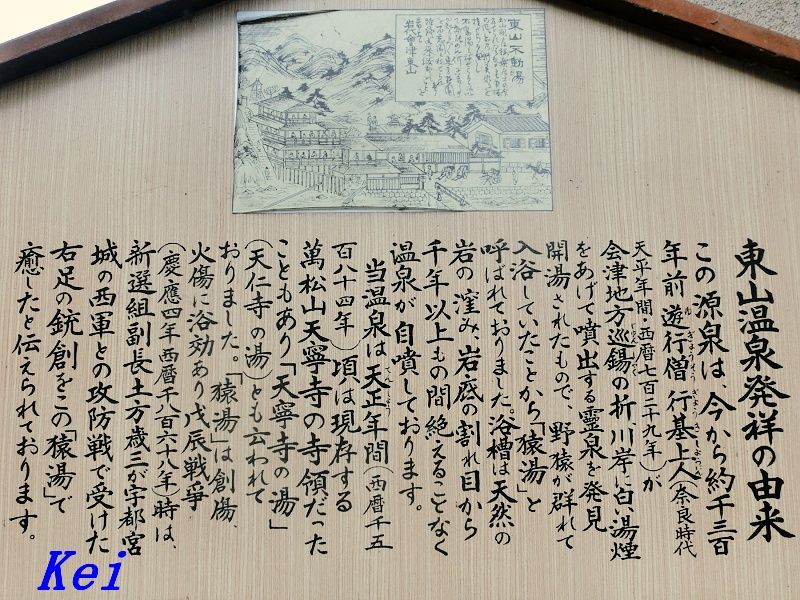 東山不動湯
岩代會津東山
東山温泉発祥の由来
この源泉は、今から約千三百
年前遊行僧行基上人(奈良時代
天平年間・西暦七百二十九年)が
会津地方巡錫の折、川岸に白い湯煙
をあげて噴出する霊泉を発見
開湯されたもので、野猿が群れて
入浴していたことから「猿湯」と
呼ばれておりました。浴槽は天然の
岩の窪み、岩底の割れ目から
千年以上もの間絶えることなく
温泉が自噴しております。
当温泉は天正年間(西暦千五
百八十四年)頃は現存する
萬松山天寧寺の寺領だった
こともあり「天寧寺の湯」
(天仁寺の湯)とも云われて
おりました。「猿湯」は創傷
火傷に浴効あり戊辰戦争
(慶應四年西暦千八百六十八年)時は、
新選組副長土方歳三が宇都宮
城の西軍との攻防戦で受けた
右足の銃創をこの「猿湯」で
癒したと伝えられております。
Kei